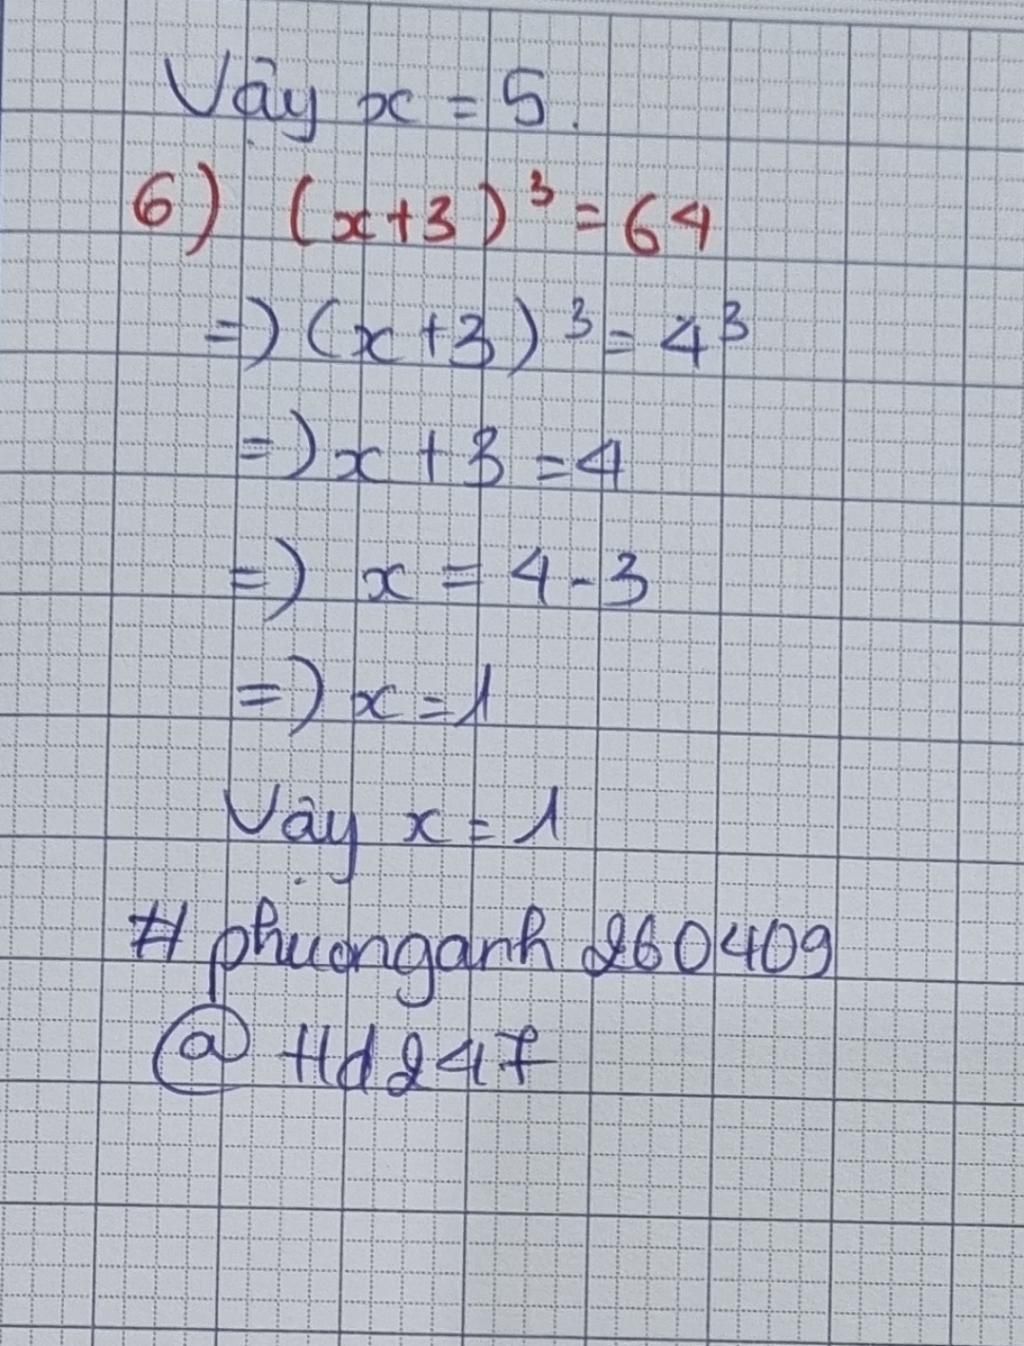 Vậy x = 5.
6) (x+3)³ = 64
=) (x+3)³ = 4³
=) x + 3 = 4
=) x = 4 - 3
=) x = 1
Vậy x = 1
# phuonganh 260409
@ Hd247